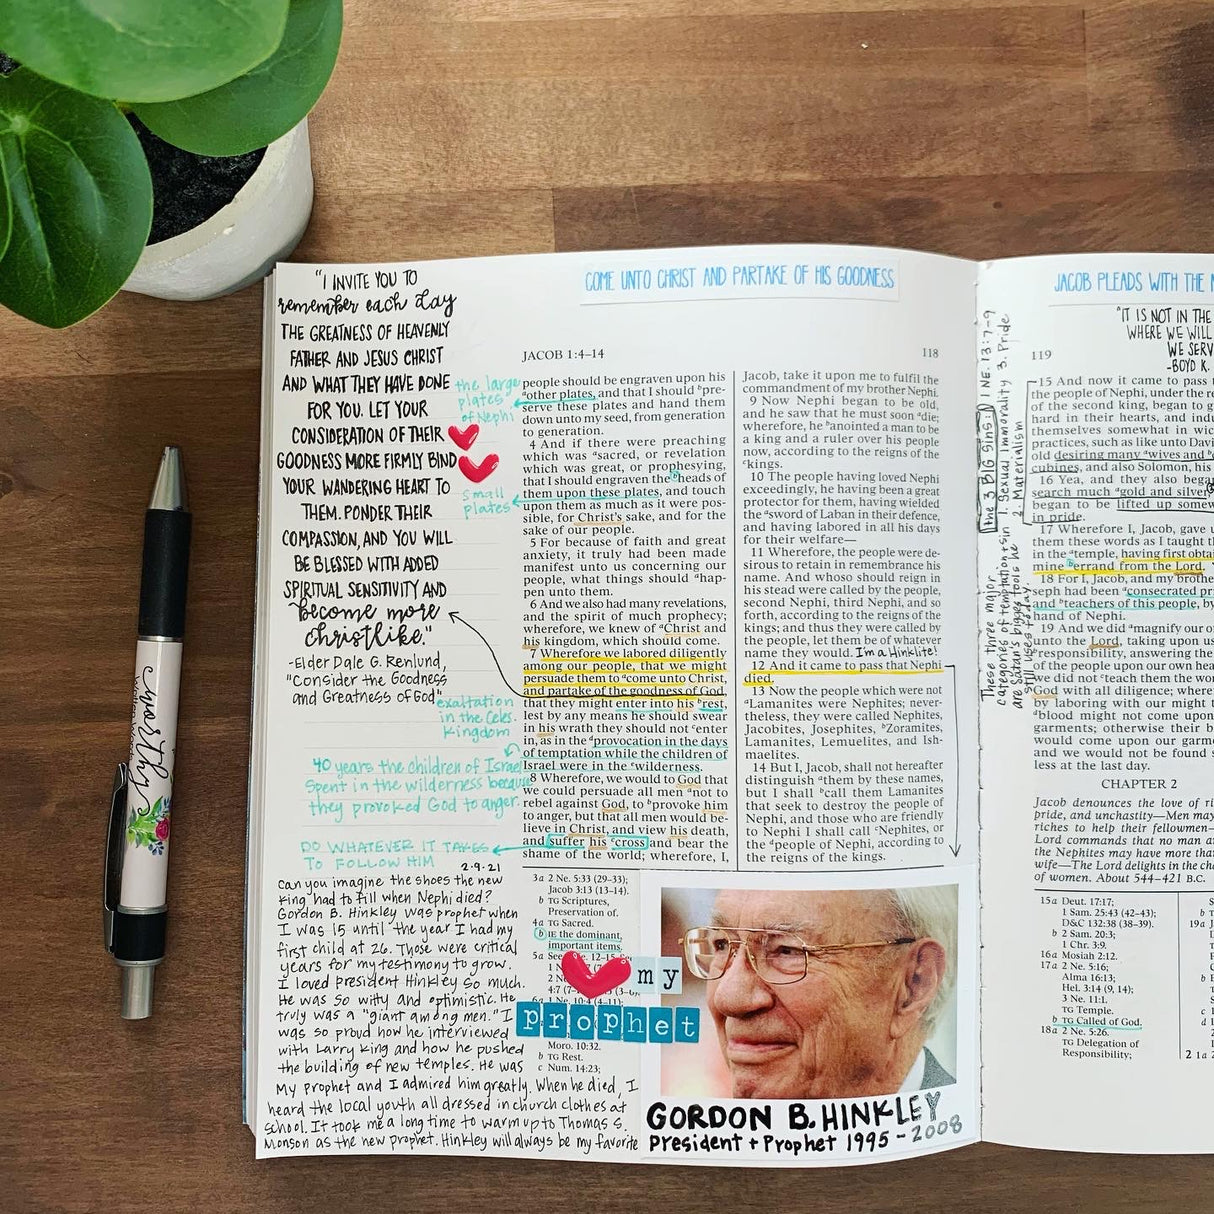 "I INVITE YOU TO
remember each day
THE GREATNESS OF HEAVENLY
FATHER AND JESUS CHRIST
AND WHAT THEY HAVE DONE
FOR YOU. LET YOUR
CONSIDERATION OF THEIR
GOODNESS MORE FIRMLY BIND
YOUR WANDERING HEART TO
THEM. PONDER THEIR
COMPASSION, AND YOU WILL
BE BLESSED WITH ADDED
SPIRITUAL SENSITIVITY AND
become more
christlike."
-Elder Dale G. Renlund,
"Consider the Goodness
and Greatness of God"
the large
plates
of Nephi
small
plates
exaltation
in the Celes.
Kingdom
40 years the children of Israel
spent in the wilderness because
they provoked God to anger.
DO WHATEVER IT TAKES
TO FOLLOW HIM
2.9.21
Can you imagine the shoes the new
king had to fill when Nephi died?
Gordon B. Hinkley was prophet when
I was 15 until the year I had my
first child at 26. Those were critical
years for my testimony to grow.
I loved President Hinkley so much.
He was so witty and optimistic. He
truly was a "giant among men." I
was so proud how he interviewed
with Larry King and how he pushed
the building of new temples. He was
my prophet and I admired him greatly. When he died, I
heard the local youth all dressed in church clothes at
school. It took me a long time to warm up to Thomas S.
Monson as the new prophet. Hinkley will always be my favorite
COME UNTO CHRIST AND PARTAKE OF HIS GOODNESS
JACOB 1:4–14
118
people should be engraven upon his
aother plates, and that I should bpre-
serve these plates and hand them
down unto my seed, from generation
to generation.
4 And if there were preaching
which was asacred, or revelation
which was great, or prophesying,
that I should engraven the bheads of
them upon these plates, and touch
upon them as much as it were pos-
sible, for Christ's sake, and for the
sake of our people.
5 For because of faith and great
anxiety, it truly had been made
manifest unto us concerning our
people, what things should ahap-
pen unto them.
6 And we also had many revelations,
and the spirit of much prophecy;
wherefore, we knew of aChrist and
his kingdom, which should come.
7 Wherefore we labored diligently
among our people, that we might
persuade them to acome unto Christ,
and partake of the goodness of God,
that they might enter into his brest,
lest by any means he should swear
in his wrath they should not center
in, as in the dprovocation in the days
of temptation while the children of
Israel were in the ewilderness.
8 Wherefore, we would to God that
we could persuade all men anot to
rebel against God, to bprovoke him
to anger, but that all men would be-
lieve in Christ, and view his death,
and suffer his ccross and bear the
shame of the world; wherefore, I,
Jacob, take it upon me to fulfil the
commandment of my brother Nephi.
9 Now Nephi began to be old,
and he saw that he must soon adie;
wherefore, he banointed a man to be
a king and a ruler over his people
now, according to the reigns of the
ckings.
10 The people having loved Nephi
exceedingly, he having been a great
protector for them, having wielded
the asword of Laban in their defence,
and having labored in all his days
for their welfare—
11 Wherefore, the people were de-
sirous to retain in remembrance his
name. And whoso should reign in
his stead were called by the people,
second Nephi, third Nephi, and so
forth, according to the reigns of the
kings; and thus they were called by
the people, let them be of whatever
name they would. I'm a Hinklite!
12 And it came to pass that Nephi
died.
13 Now the people which were not
aLamanites were Nephites; never-
theless, they were called Nephites,
Jacobites, Josephites, bZoramites,
Lamanites, Lemuelites, and Ish-
maelites.
14 But I, Jacob, shall not hereafter
distinguish athem by these names,
but I shall bcall them Lamanites
that seek to destroy the people of
Nephi, and those who are friendly
to Nephi I shall call cNephites, or
the dpeople of Nephi, according to
the reigns of the kings.
3a 2 Ne. 5:33 (29–33);
Jacob 3:13 (13–14).
b TG Scriptures,
Preservation of.
4a TG Sacred.
b IE the dominant,
important items.
Moro. 10:32.
b TG Rest.
c Num. 14:23;
my
prophet
GORDON B. HINKLEY
President + Prophet 1995 - 2008
Christy
The 3 BIG SINS: 1 NE. 13:7-9
1. Sexual Immorality 3. Pride
2. Materialism
These three major
categories of temptation + sin
are Satan's biggest tools he
still uses today.
JACOB PLEADS WITH THE
"IT IS NOT IN THE
WHERE WE WILL
WE SERV
-BOYD K.
119
15 And now it came to pass
the people of Nephi, under the re
of the second king, began to g
hard in their hearts, and indu
themselves somewhat in wic
practices, such as like unto Davi
old desiring many awives and b
cubines, and also Solomon, his
16 Yea, and they also began
search much agold and silver
began to be lifted up somew
in pride.
17 Wherefore I, Jacob, gave u
them these words as I taught th
in the atemple, having first obtai
mine berrand from the Lord.
18 For I, Jacob, and my brothe
seph had been aconsecrated pri
and bteachers of this people, by
hand of Nephi.
19 And we did amagnify our of
to the Lord, taking upon us
bresponsibility, answering the
of the people upon our own hea
we did not cteach them the wo
God with all diligence; where
by laboring with our might t
dblood might not come upon
garments; otherwise their b
would come upon our garm
and we would not be found s
less at the last day.
CHAPTER 2
Jacob denounces the love of ri
pride, and unchastity—Men may
riches to help their fellowmen—
Lord commands that no man a
the Nephites may have more than
wife—The Lord delights in the cha
of women. About 544–421 B.C.
15a Deut. 17:17;
1 Sam. 25:43 (42–43);
D&C 132:38 (38–39).
b 2 Sam. 20:3;
1 Chr. 3:9.
16a Mosiah 2:12.
17a 2 Ne. 5:16;
Alma 16:13;
Hel. 3:14 (9, 14);
3 Ne. 11:1.
TG Temple.
b TG Called of God.
18a 2 Ne. 5:26.
TG Delegation of
Responsibility;
b T
19a J
2 1a